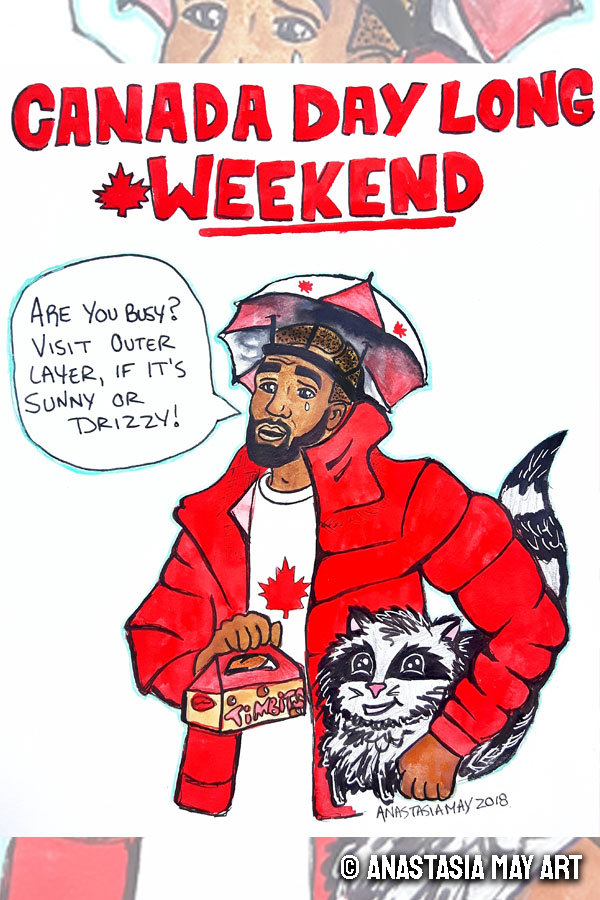 CANADA DAY LONG
WEEKEND
ARE YOU BUSY?
VISIT OUTER
LAYER, IF IT'S
SUNNY OR
DRIZZY!
TIMBITS
ANASTASIA MAY 2018
© ANASTASIA MAY ART